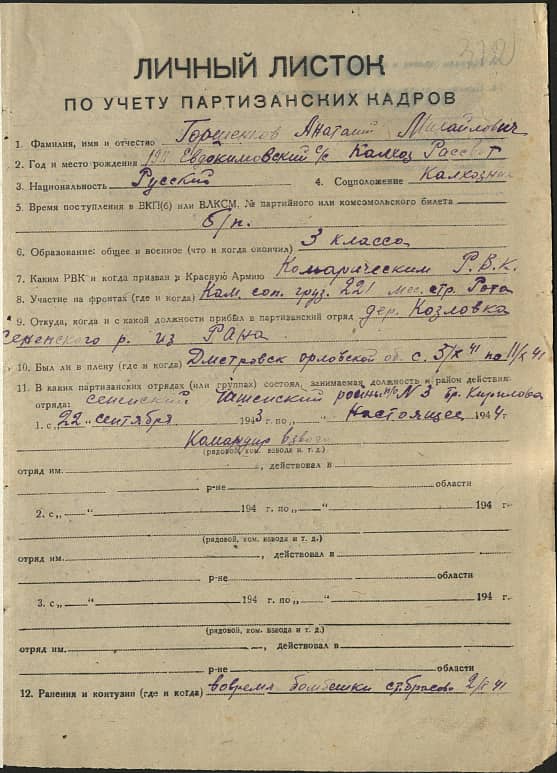 ЛИЧНЫЙ ЛИСТОК
ПО УЧЕТУ ПАРТИЗАНСКИХ КАДРОВ
1. Фамилия, имя и отчество Горшенков Анатаий Михайлович
2. Год и место рождения Евдокимовский с/с Калхоз Рассвет
3. Национальность Русский 4. Соцположение Калхозник
5. Время поступления в ВКП(б) или ВЛКСМ, № партийного или комсомольского билета
б/п.
6. Образование: общее и военное (что и когда окончил) 3 класса
7. Каким РВК и когда призван в Красную Армию Комарическим Р.В.К.
8. Участие на фронтах (где и когда) Кам. соп. груз. 221 мес. стр. Рота
9. Откуда, когда и с какой должности прибыл в партизанский отряд дер. Козловка
Сененского р. из
10. Был ли в плену (где и когда) Дметровск орловской об. с. 5/X 41 по 11/X 41
11. В каких партизанских отрядах (или группах) состоял, занимаемая должность и район действия
отряда: сененский № 3 бр. Кирилова
1. с „22 сентября 1943 г. по „ Настоящее 1944 г.
Командир взвода
(рядовой, ком. взвода и т. д.)
отряд им. , действовал в
р-не области
2. с „ “ 194 г. по „ “ 194 г.
(рядовой, ком. взвода и т. д.)
отряд им. , действовал в
р-не области
3. с „ “ 194 г. по „ “ 194 г.
(рядовой, ком. взвода и т. д.)
отряд им. , действовал в
р-не области
12. Ранения и контузии (где и когда) вовремя бомбешки ст. Брасово 2/X 41